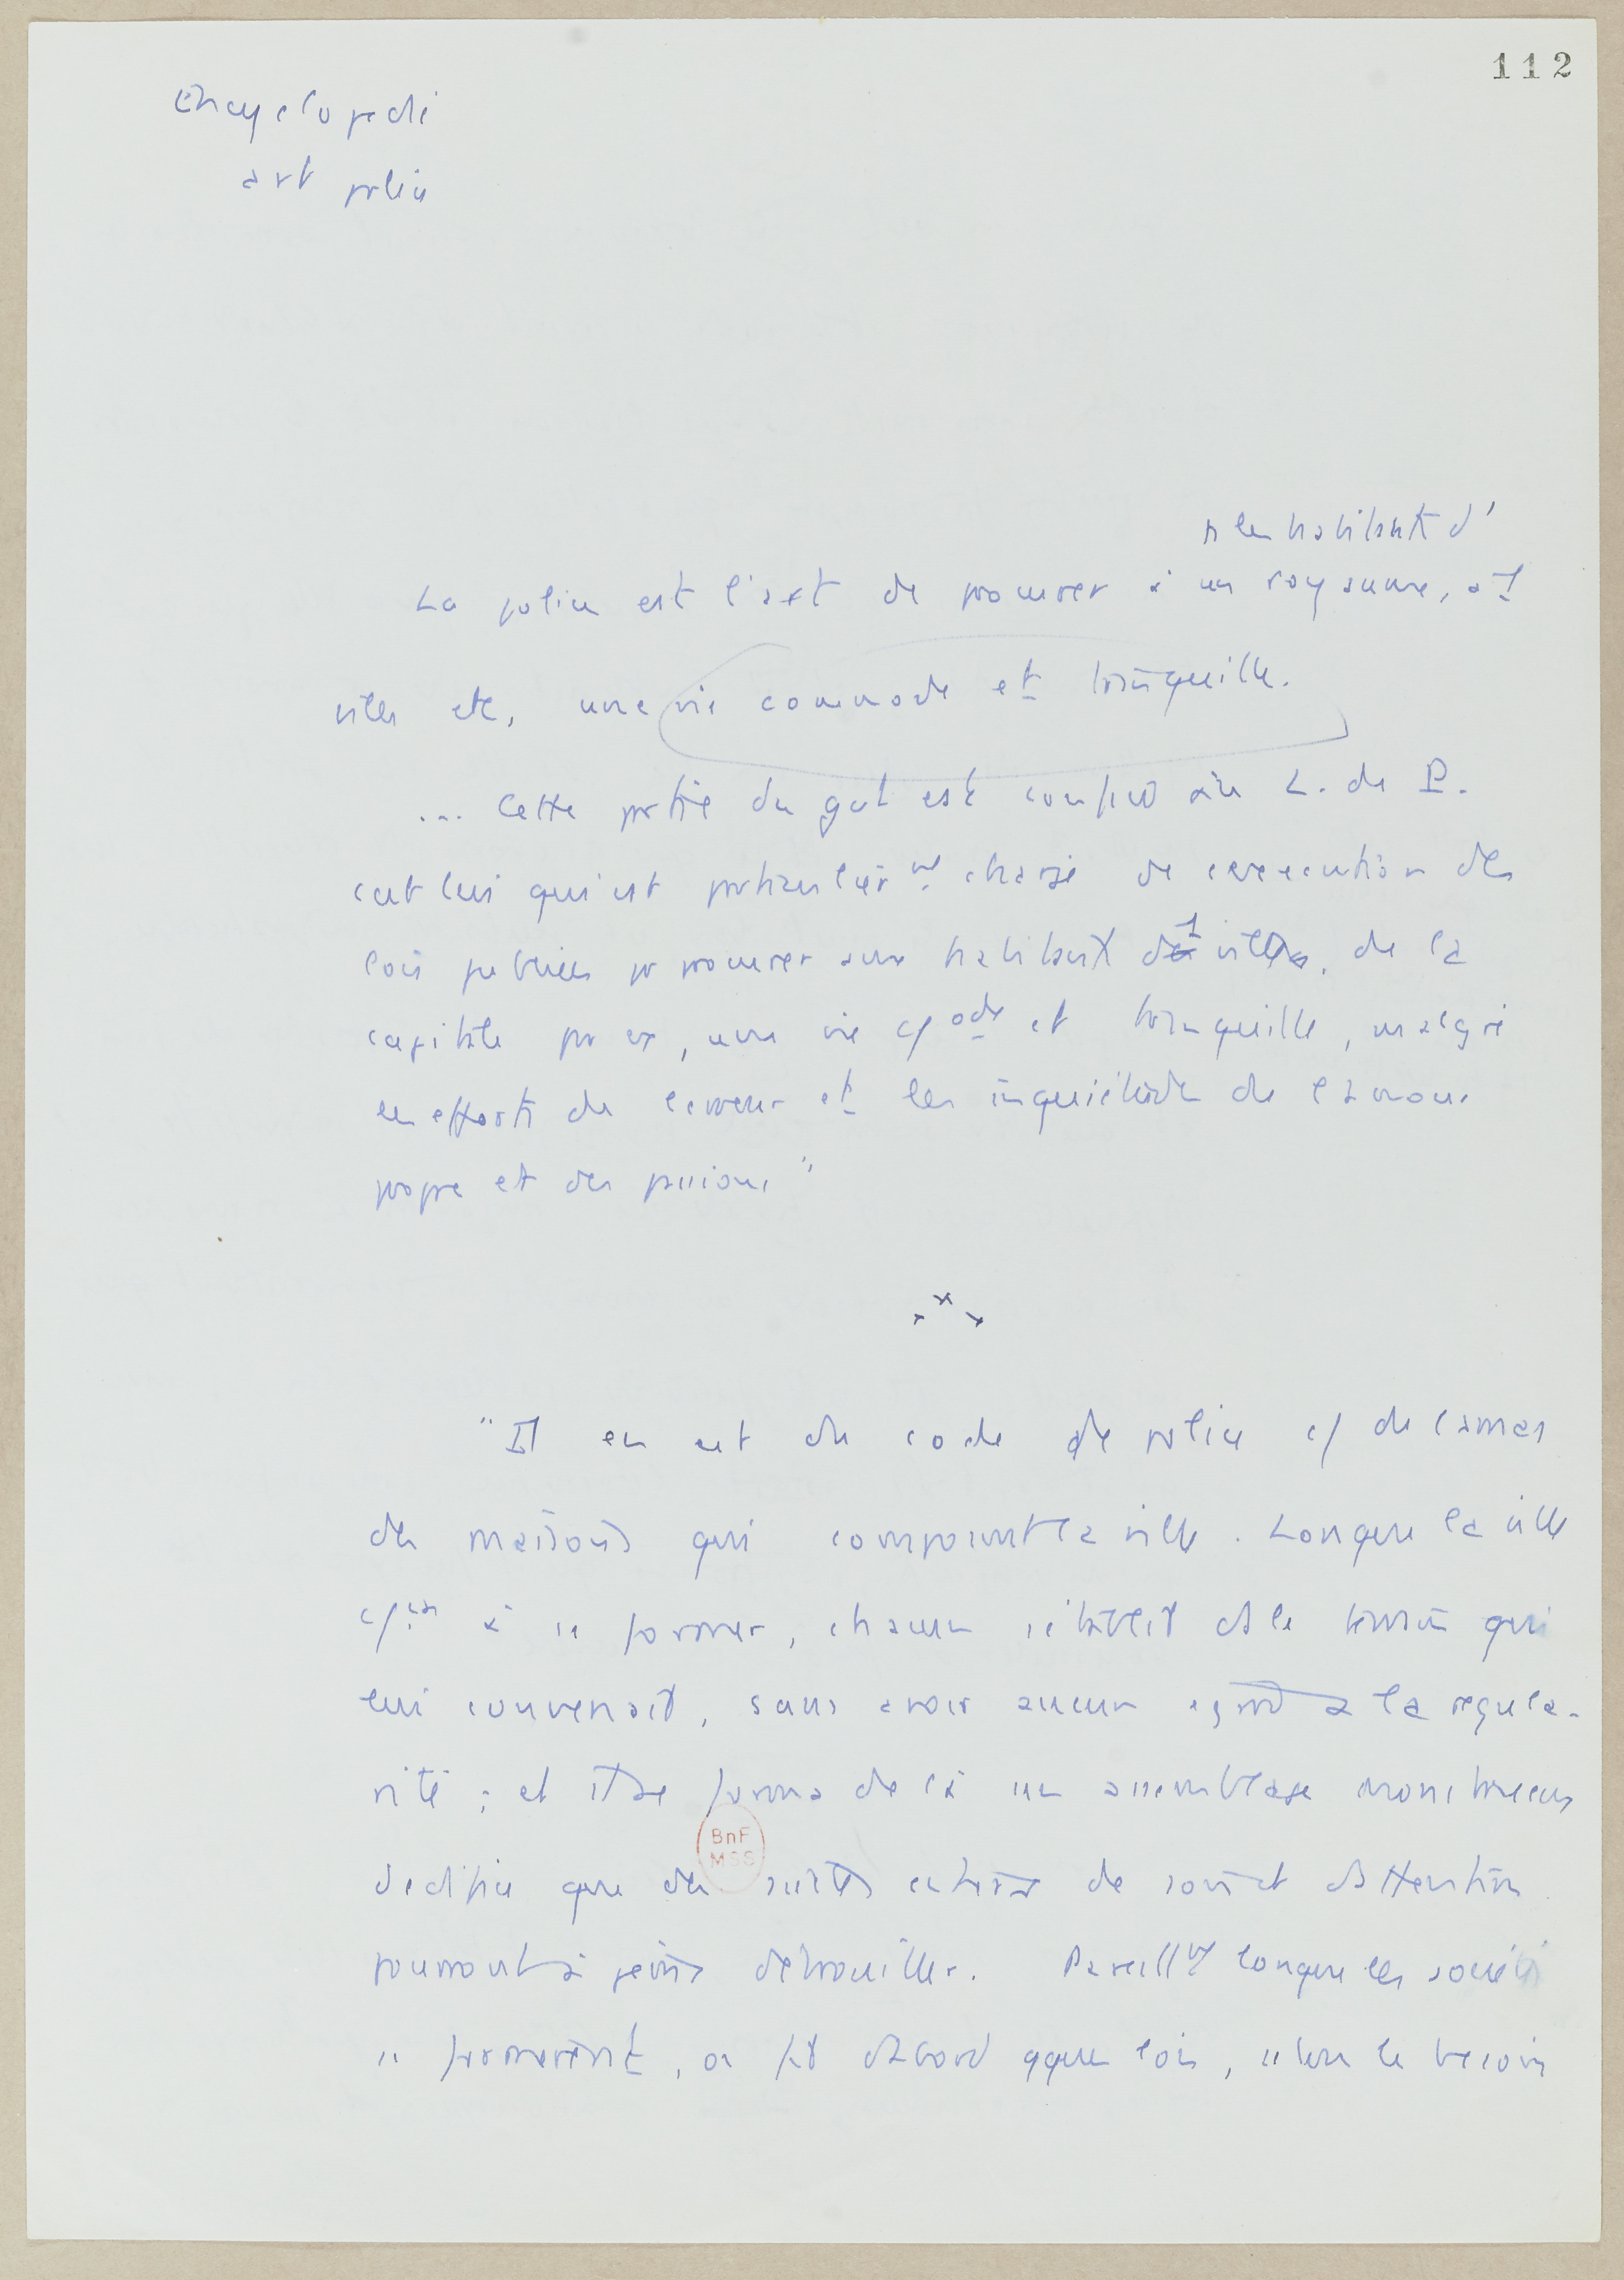 112
Encyclopedi
art police
les habitants d'
La police est l'art de procurer à un royaume, à 1
villes etc, une vie commode et tranquille.
... Cette partie du gvt est confiée au L. de P.
c'est lui qui est particulièrmt chargé de l'exécution des
lois publiées pr procurer aux habitants d 1 ville, de la
capitale par ex, une vie c/ode et tranquille, malgré
les efforts de l'erreur et les inquiétudes de l'amour
propre et des passions"
"Il en est du code de police c/ de l'amas
des maisons qui composent la ville. Lorsque la ville
c/ça à se former, chacun s'établit ds le terrain qui
lui convenait, sans avoir aucun égard à la régula-
rité ; et il se forma de là un assemblage monstrueux
d'édifices que des siècles entiers de soin et d'attention
pourront à peine débrouiller. Pareillt lorsque les sociétés
se formèrent, on fit d'abord qques lois, selon le besoin
BnF
MSS